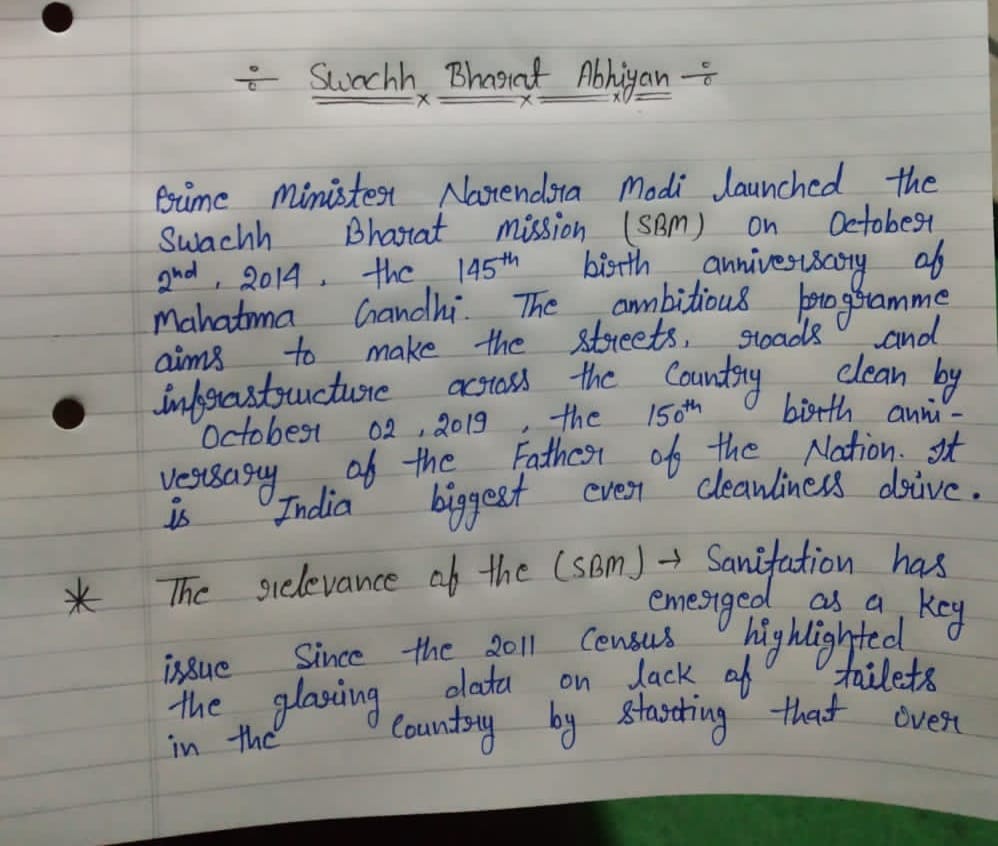 ÷ Swachh Bharat Abhiyan ÷
Prime Minister Narendra Modi launched the
Swachh Bharat Mission (SBM) on October
2nd, 2014, the 145th birth anniversary of
Mahatma Gandhi. The ambitious programme
aims to make the streets, roads and
infrastructure across the Country clean by
October 02, 2019, the 150th birth anni-
versary of the Father of the Nation. It
is India biggest ever cleanliness drive.
* The relevance of the (SBM) → Sanitation has
emerged as a key
issue Since the 2011 Census highlighted
the glaring data on lack of toilets
in the Country by starting that over